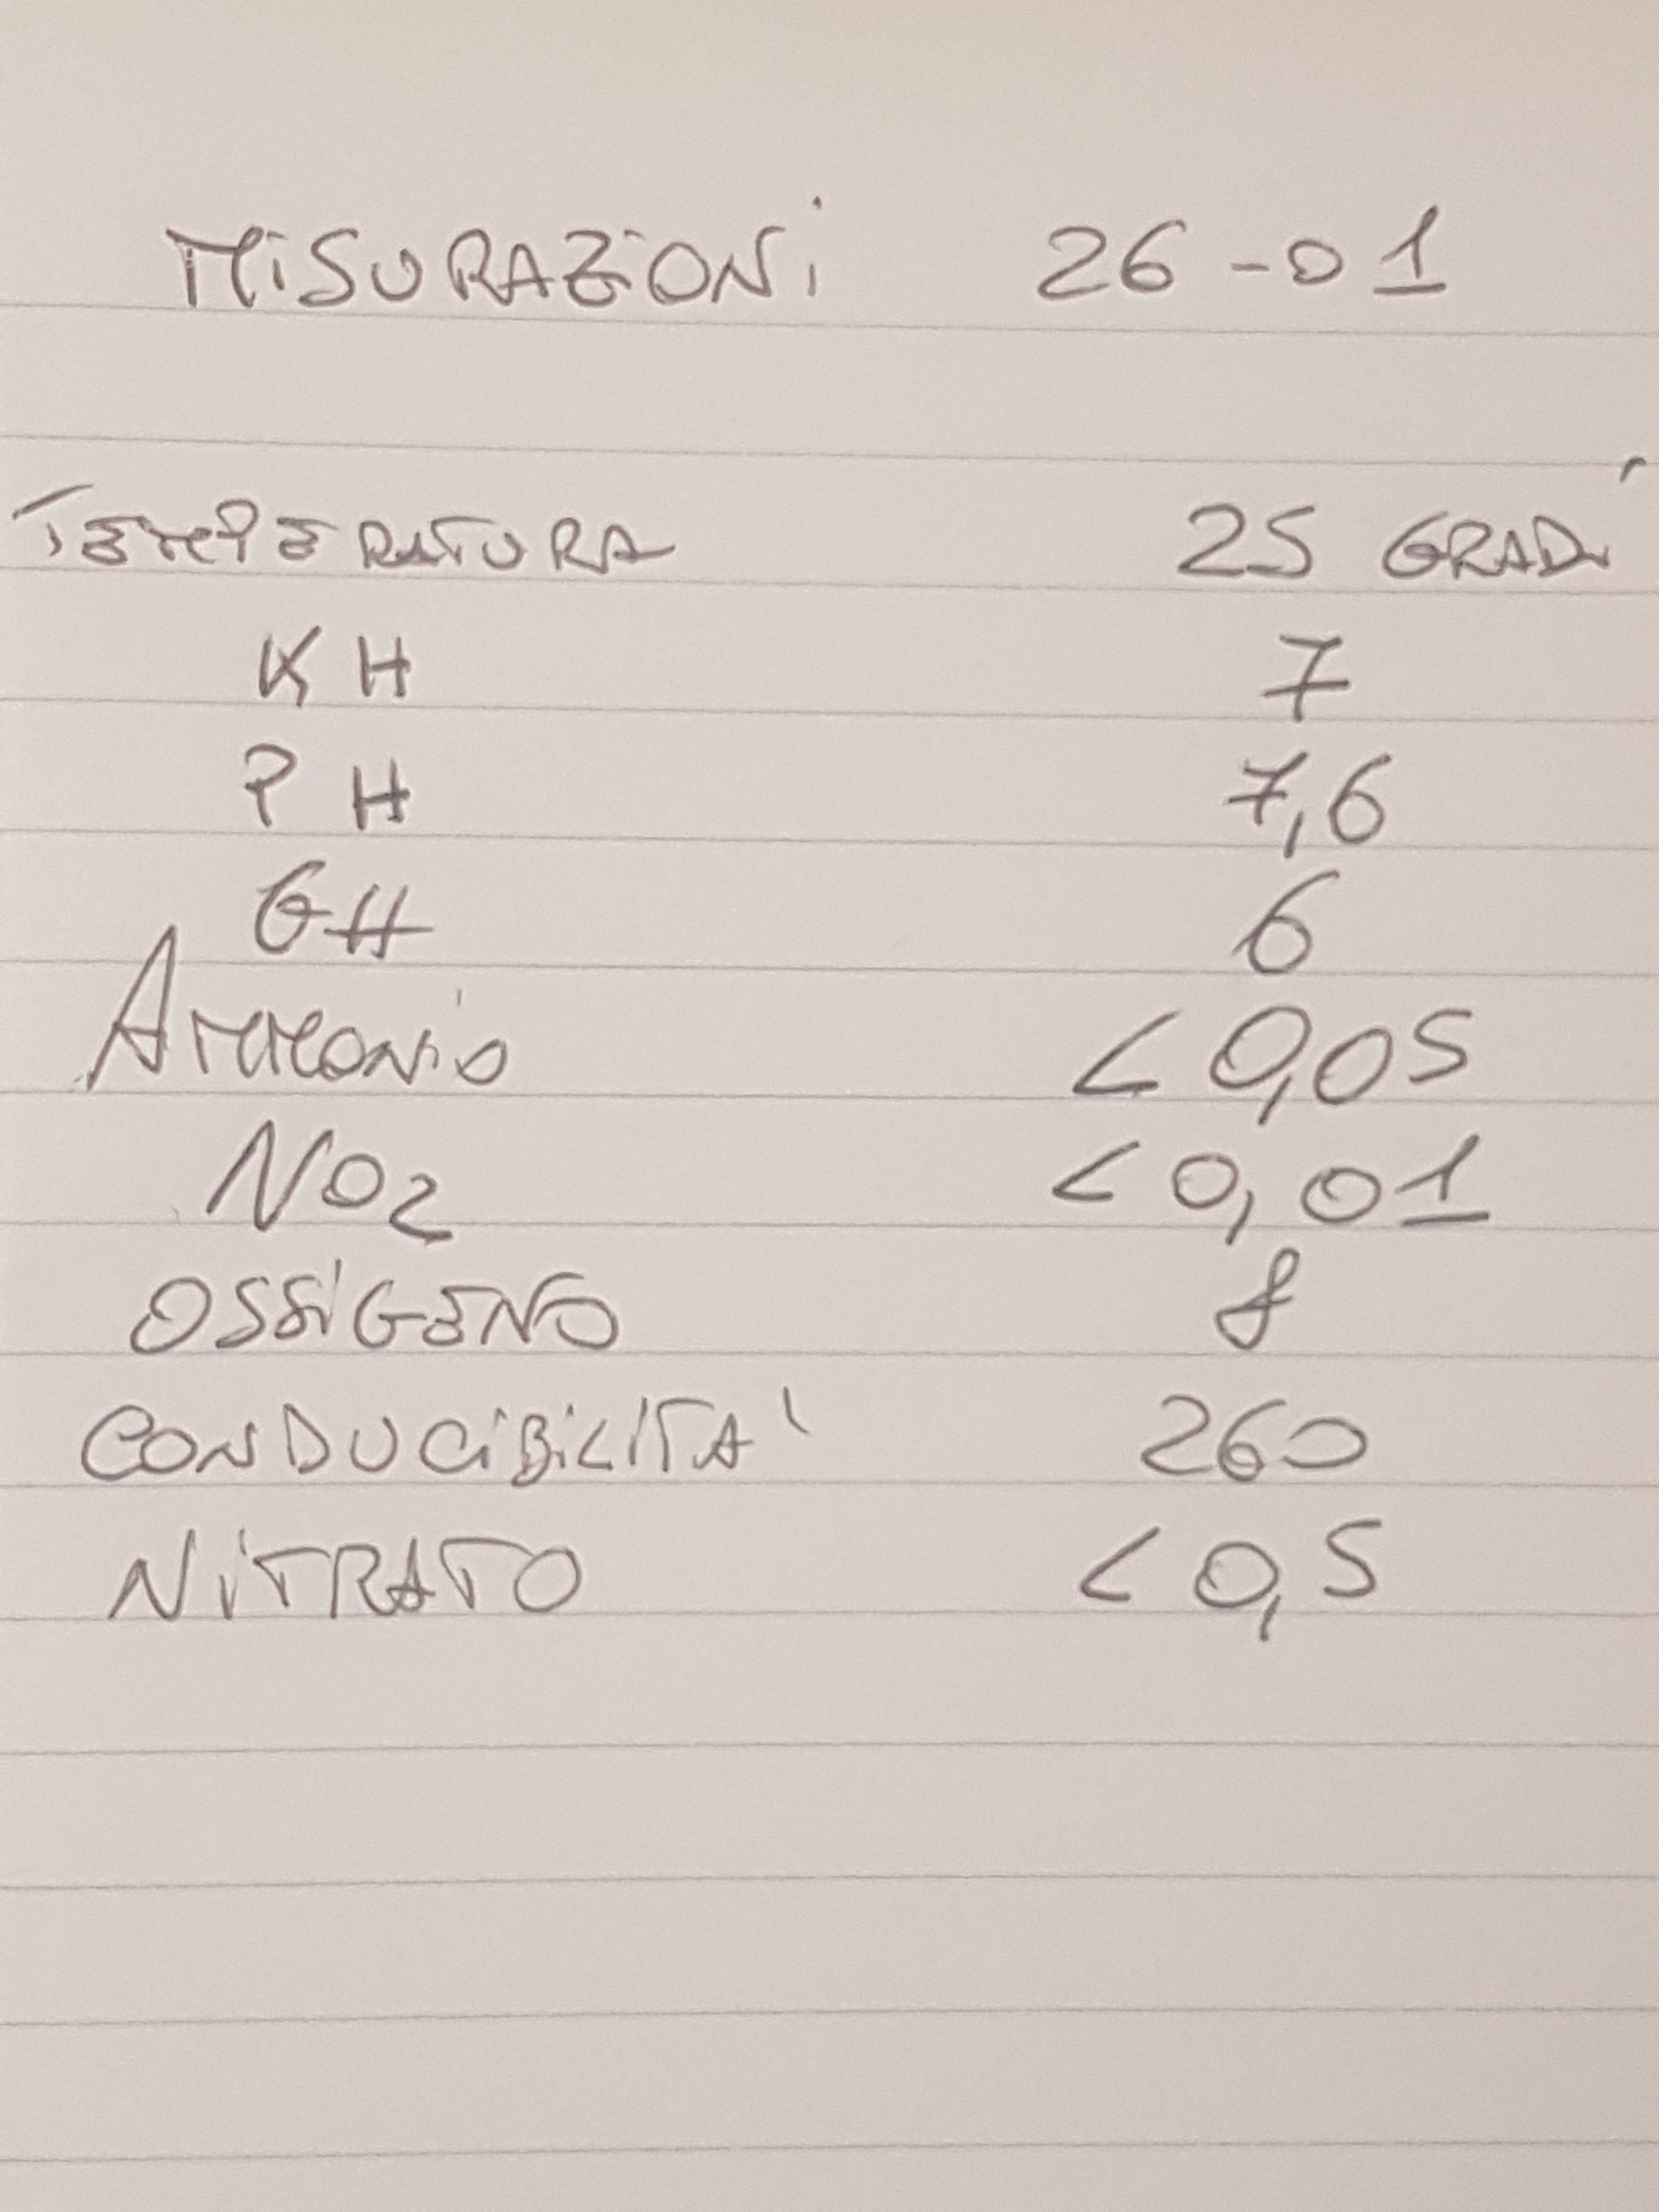 MISURAZIONI 26-01
TEMPERATURA 25 GRADI
KH 7
PH 7,6
GH 6
AMMONIO <0,05
NO2 <0,01
OSSIGENO 8
CONDUCIBILITA' 260
NITRATO <0,5